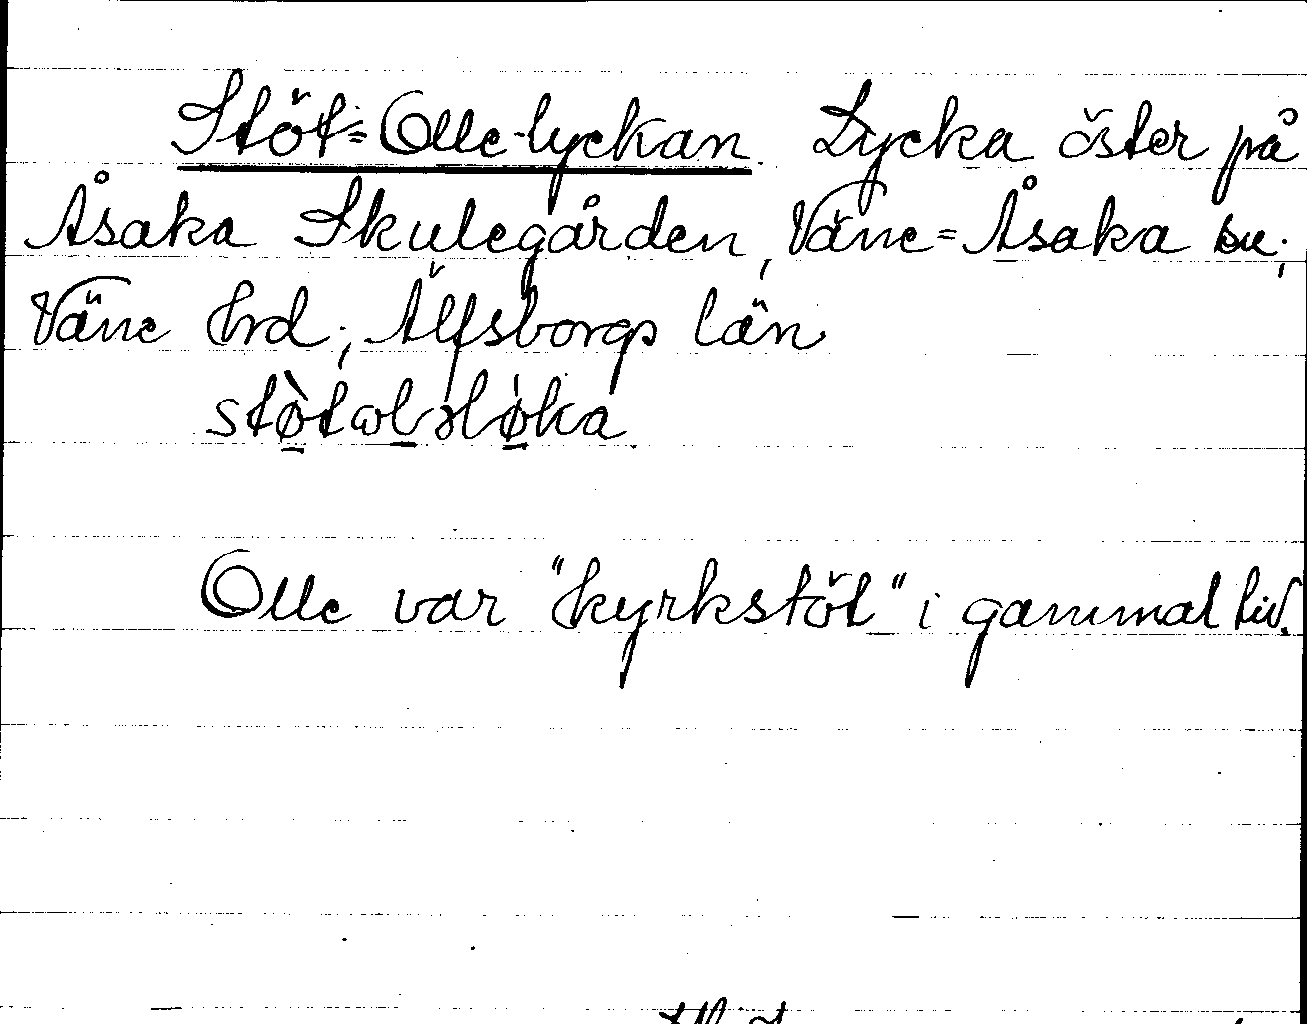 Stöt-Olle-lyckan. Lycka öster på
Åsaka Skulegården, Väne-Åsaka sn;
Väne hrd; Älfsborgs län
Olle var "kyrkstöt" i gammal tid.